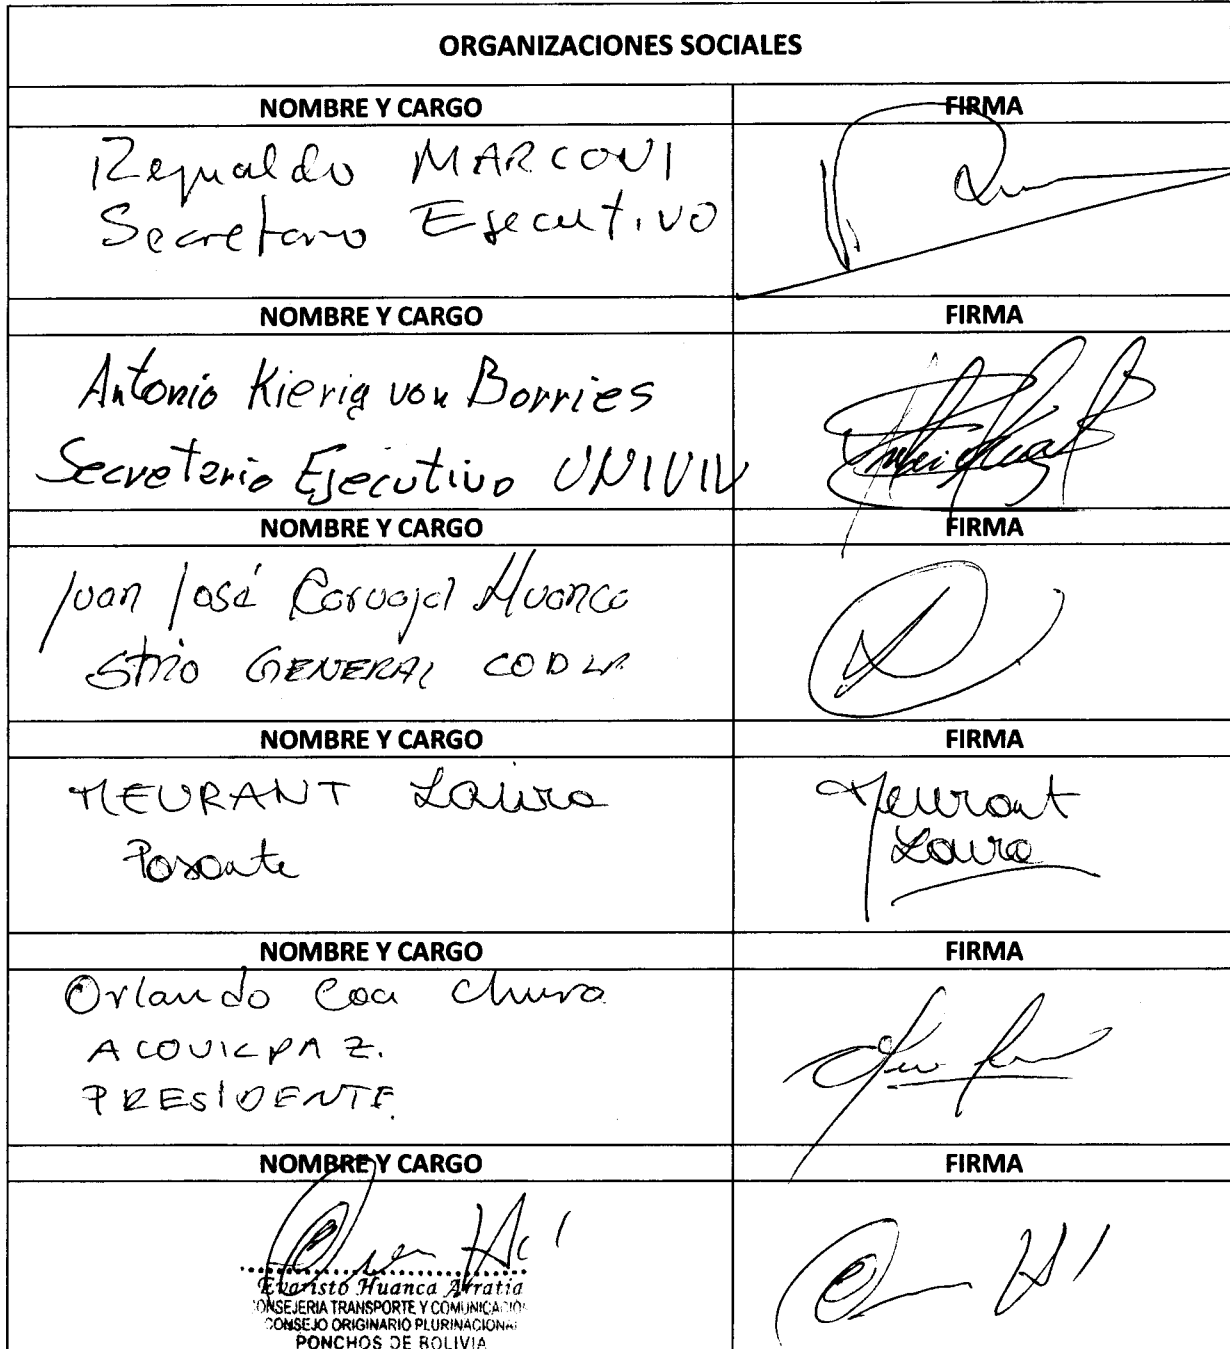 ORGANIZACIONES SOCIALES
NOMBRE Y CARGO FIRMA
Reynaldo MARCONI
Secretario Ejecutivo
NOMBRE Y CARGO FIRMA
Antonio Kierig von Borries
Secretario Ejecutivo UNIVIV
NOMBRE Y CARGO FIRMA
Juan José Carvajal Huanca
STRIO GENERAL CODLP
NOMBRE Y CARGO FIRMA
MEURANT Laura Meurant
Pasante Laura
NOMBRE Y CARGO FIRMA
Orlando Coa Chura
ACOVILPAZ.
PRESIDENTE
NOMBRE Y CARGO FIRMA
Evaristo Huanca Arratia
CONSEJERIA TRANSPORTE Y COMUNICACION
CONSEJO ORIGINARIO PLURINACIONAL
PONCHOS DE BOLIVIA